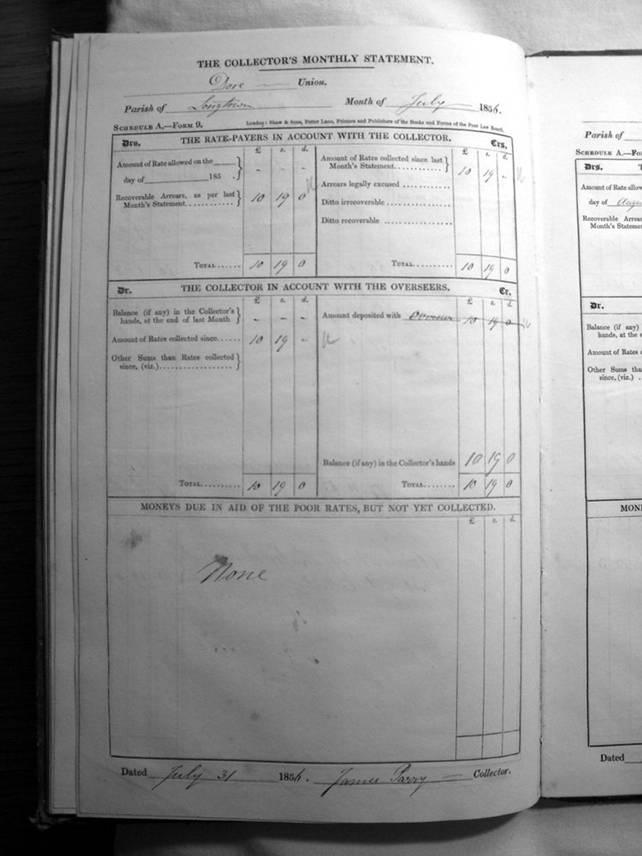 THE COLLECTOR'S MONTHLY STATEMENT.
Dore Union.
Parish of Longtown Month of July 1856.
SCHEDULE A.—FORM 9. London: Shaw & Sons, Fetter Lane, Printers and Publishers of the Books and Forms of the Poor Law Board.
Drs. THE RATE-PAYERS IN ACCOUNT WITH THE COLLECTOR. Crs.
£ s. d. £ s. d.
Amount of Rate allowed on the - - - Amount of Rates collected since last
day of 185 . Month's Statement 10 19 -
Recoverable Arrears, as per last 10 19 0 Arrears legally excused
Month's Statement Ditto irrecoverable
Ditto recoverable
TOTAL 10 19 0 TOTAL 10 19 0
Dr. THE COLLECTOR IN ACCOUNT WITH THE OVERSEERS. Cr.
£ s. d. £ s. d.
Balance (if any) in the Collector's - - - Amount deposited with Overseer 10 19 0
hands, at the end of last Month
Amount of Rates collected since 10 19 -
Other Sums than Rates collected
since, (viz.)
Balance (if any) in the Collector's hands 10 19 0
TOTAL 10 19 0 TOTAL 10 19 0
MONEYS DUE IN AID OF THE POOR RATES, BUT NOT YET COLLECTED.
£ s. d.
None
Dated July 31 1856. James Parry Collector.
Parish of
SCHEDULE A.—FORM
Drs.
Amount of Rate allow
day of Augu
Recoverable Arrears
Month's Statement
Dr.
Balance (if any)
hands, at the e
Amount of Rates
Other Sums tha
since, (viz.)
MONE
Dated